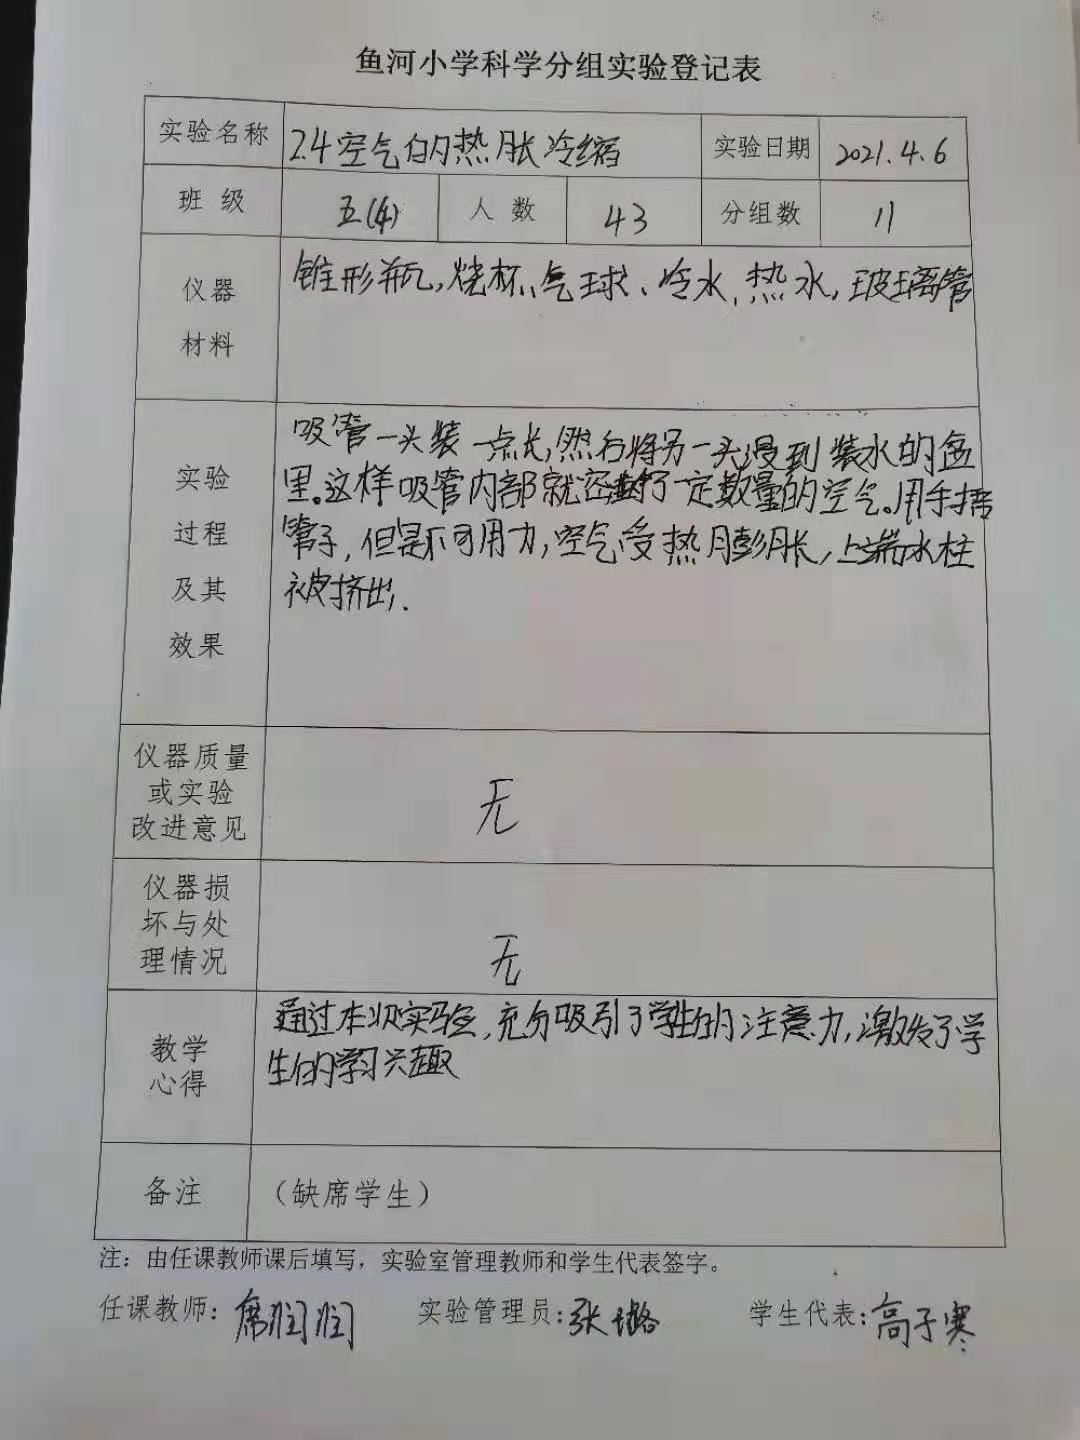 鱼河小学科学分组实验登记表
实验名称 2.4空气的热胀冷缩 实验日期 2021.4.6
班级 五(4) 人数 43 分组数 11
仪器
材料
锥形瓶,烧杯、气球、冷水、热水,玻璃管
实验
过程
及其
效果
吸管一头装一点长,然后将另一头浸到装水的盆
里。这样吸管内部就密封了一定数量的空气。用手捂
管子,但是不可用力,空气受热膨胀,上端水柱
被挤出.
仪器质量
或实验
改进意见
无
仪器损
坏与处
理情况
无
教学
心得
通过本次实验,充分吸引了学生的注意力,激发了学
生的学习兴趣
备注 (缺席学生)
注：由任课教师课后填写，实验室管理教师和学生代表签字。
任课教师：席润润 实验管理员:张璐 学生代表:高子寒